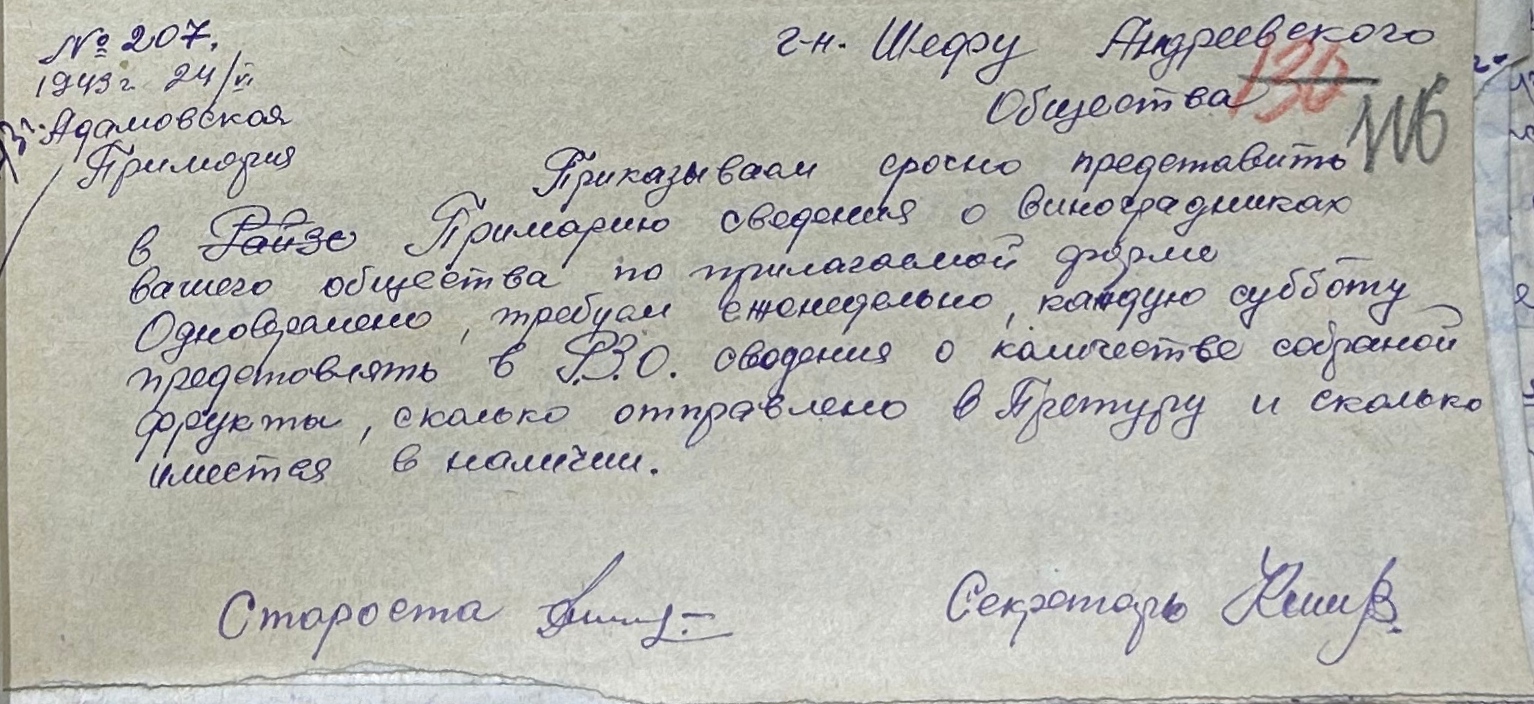 № 207.
1943 г. 24/VI
Адамовская
Примария
г-н. Шефу Андреевского
Общества
130
116
Приказываем срочно представить
в Райзо Примарию сведения о виноградниках
вашего общества по прилагаемой форме
Одновремено, требуем еженедельно, каждую субботу
предстовлять в Р.З.О. сведения о количестве собраной
фрукты, сколько отправлено в Претуру и сколько
имеется в наличии.
Староста
Секретарь